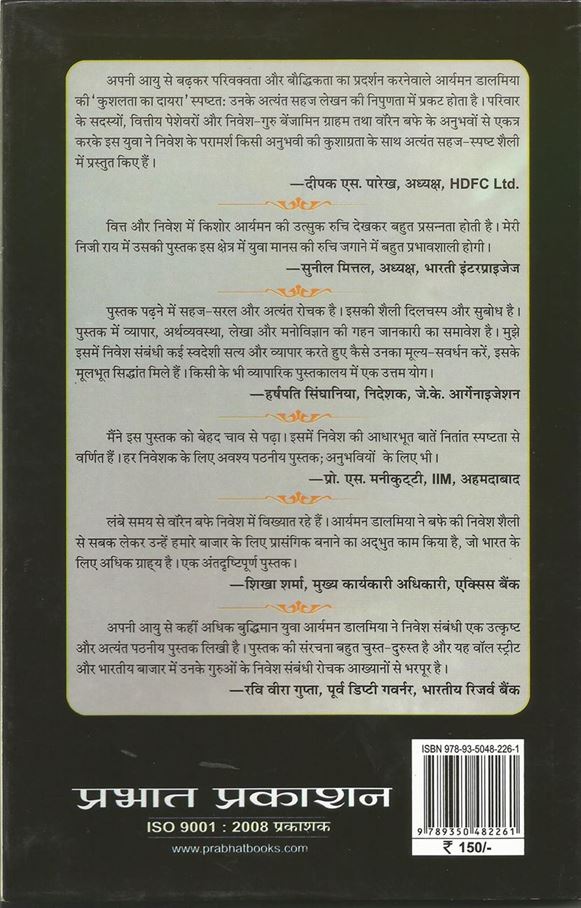 अपनी आयु से बढ़कर परिवक्वता और बौद्धिकता का प्रदर्शन करनेवाले आर्यमन डालमिया
की 'कुशलता का दायरा' स्पष्टत: उनके अत्यंत सहज लेखन की निपुणता में प्रकट होता है। परिवार
के सदस्यों, वित्तीय पेशेवरों और निवेश-गुरु बेंजामिन ग्राहम तथा वॉरेन बफे के अनुभवों से एकत्र
करके इस युवा ने निवेश के परामर्श किसी अनुभवी की कुशाग्रता के साथ अत्यंत सहज-स्पष्ट शैली
में प्रस्तुत किए हैं।
—दीपक एस. पारेख, अध्यक्ष, HDFC Ltd.
वित्त और निवेश में किशोर आर्यमन की उत्सुक रुचि देखकर बहुत प्रसन्नता होती है। मेरी
निजी राय में उसकी पुस्तक इस क्षेत्र में युवा मानस की रुचि जगाने में बहुत प्रभावशाली होगी।
—सुनील मित्तल, अध्यक्ष, भारती इंटरप्राइजेज
पुस्तक पढ़ने में सहज-सरल और अत्यंत रोचक है। इसकी शैली दिलचस्प और सुबोध है।
पुस्तक में व्यापार, अर्थव्यवस्था, लेखा और मनोविज्ञान की गहन जानकारी का समावेश है। मुझे
इसमें निवेश संबंधी कई स्वदेशी सत्य और व्यापार करते हुए कैसे उनका मूल्य-सवर्धन करें, इसके
मूलभूत सिद्धांत मिले हैं। किसी के भी व्यापारिक पुस्तकालय में एक उत्तम योग।
—हर्षपति सिंघानिया, निदेशक, जे.के. आर्गेनाइजेशन
मैंने इस पुस्तक को बेहद चाव से पढ़ा। इसमें निवेश की आधारभूत बातें नितांत स्पष्टता से
वर्णित हैं। हर निवेशक के लिए अवश्य पठनीय पुस्तक; अनुभवियों के लिए भी।
—प्रो. एस. मनीकुट्टी, IIM, अहमदाबाद
लंबे समय से वॉरेन बफे निवेश में विख्यात रहे हैं। आर्यमन डालमिया ने बफे की निवेश शैली
से सबक लेकर उन्हें हमारे बाजार के लिए प्रासंगिक बनाने का अद्भुत काम किया है, जो भारत के
लिए अधिक ग्राह्य है। एक अंतदृष्टिपूर्ण पुस्तक।
—शिखा शर्मा, मुख्य कार्यकारी अधिकारी, एक्सिस बैंक
अपनी आयु से कहीं अधिक बुद्धिमान युवा आर्यमन डालमिया ने निवेश संबंधी एक उत्कृष्ट
और अत्यंत पठनीय पुस्तक लिखी है। पुस्तक की संरचना बहुत चुस्त-दुरुस्त है और यह वॉल स्ट्रीट
और भारतीय बाजार में उनके गुरुओं के निवेश संबंधी रोचक आख्यानों से भरपूर है।
—रवि वीरा गुप्ता, पूर्व डिप्टी गवर्नर, भारतीय रिजर्व बैंक
ISBN 978-93-5048-226-1
9 789350 482261
₹ 150/-
प्रभात प्रकाशन
ISO 9001 : 2008 प्रकाशक
www.prabhatbooks.com